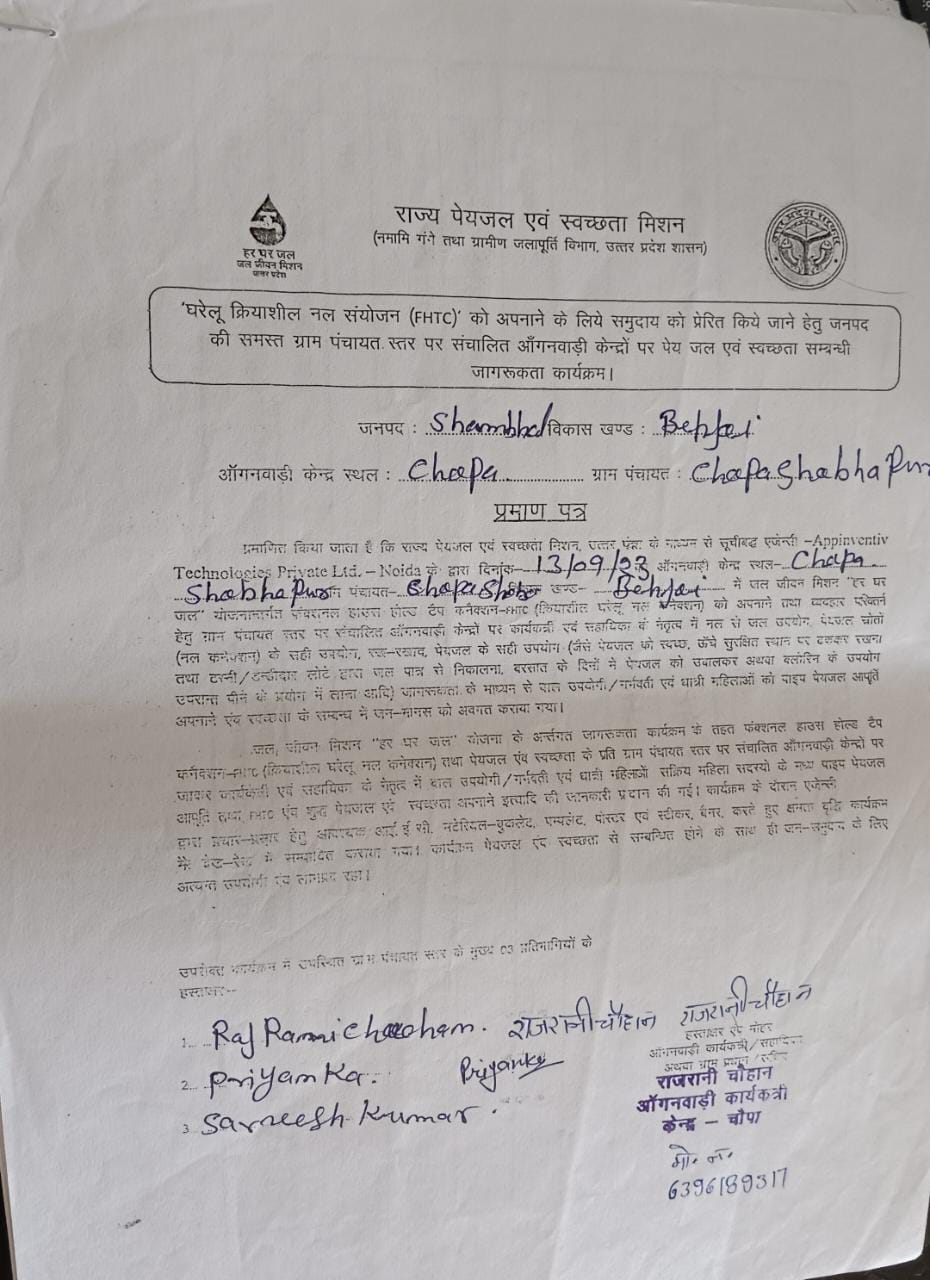 राज्य पेयजल एवं स्वच्छता मिशन
(नमामि गंगे तथा ग्रामीण जलापूर्ति विभाग, उत्तर प्रदेश शासन)
हर घर जल
जल जीवन मिशन
उत्तर प्रदेश
उत्तर प्रदेश सरकार
'घरेलू क्रियाशील नल संयोजन (FHTC)' को अपनाने के लिये समुदाय को प्रेरित किये जाने हेतु जनपद
की समस्त ग्राम पंचायत स्तर पर संचालित आँगनवाड़ी केन्द्रों पर पेय जल एवं स्वच्छता सम्बन्धी
जागरूकता कार्यक्रम।
जनपद : Shambhal विकास खण्ड : Behjai
ऑगनवाड़ी केन्द्र स्थल : Chapa ग्राम पंचायत : Chapa Shobha Pur
प्रमाण पत्र
प्रमाणित किया जाता है कि राज्य पेयजल एवं स्वच्छता मिशन, उत्तर प्रदेश के माध्यम से सूचीबद्ध एजेन्सी -Appinventiv
Technologies Private Ltd. – Noida के द्वारा दिनांक- 13/09/23 ऑगनवाड़ी केन्द्र स्थल- Chapa
Shobha Pur पंचायत- Chapa खण्ड- Behjai में जल जीवन मिशन "हर घर
जल" योजनान्तर्गत फंक्शनल हाउस होल्ड टैप कनैक्शन-FHTC (क्रियाशील घरेलू नल कनैक्शन) को अपनाने तथा व्यवहार परिवर्तन
हेतु ग्राम पंचायत स्तर पर संचालित आँगनवाड़ी केन्द्रों पर कार्यकत्री एवं सहायिका के नेतृत्व में नल से जल उपयोग, पेयजल स्रोतों
(नल कनैक्शन) के सही उपयोग, रख-रखाव, पेयजल के सही उपयोग (जैसे पेयजल को स्वच्छ, ऊँचे सुरक्षित स्थान पर ढककर रखना
तथा टोटी/डन्डीदार लोटे द्वारा जल पात्र से निकालना, बरसात के दिनों में पेयजल को उबालकर अथवा क्लोरिन के उपयोग
उपरान्त पीने के प्रयोग में लाना आदि) जागरूकता के माध्यम से जल उपयोगी/गर्भवती एवं धात्री महिलाओं को पाइप पेयजल आपूर्ति
अपनाने एंव स्वच्छता के सम्बन्ध में जन-मानस को अवगत कराया गया।
जल जीवन मिशन "हर घर जल" योजना के अर्न्तगत जागरूकता कार्यक्रम के तहत फंक्शनल हाउस होल्ड टैप
कनैक्शन-FHTC (क्रियाशील घरेलू नल कनैक्शन) तथा पेयजल एंव स्वच्छता के प्रति ग्राम पंचायत स्तर पर संचालित आँगनवाड़ी केन्द्रों पर
जाकर कार्यकत्री एवं सहायिका के नेतृत्व में जल उपयोगी/गर्भवती एवं धात्री महिलाओं सक्रिय महिला सदस्यो के मध्य पाइप पेयजल
आपूर्ति तथा, FHTC एंव शुद्ध पेयजल एवं स्वच्छता अपनाने इत्यादि की जानकारी प्रदान की गई। कार्यक्रम के दौरान एजेन्सी
द्वारा प्रचार-प्रसार हेतु आवश्यक आई.ई.सी. मटेरियल-बुकलेट, पम्पलेट, पोस्टर एवं स्टीकर, बैनर, करते हुए क्षमता वृद्धि कार्यक्रम
में सम्पादित कराया गया। कार्यक्रम पेयजल एंव स्वच्छता से सम्बन्धित होने के साथ ही जन-समुदाय के लिए
अत्यन्त उपयोगी एंव लाभप्रद रहा।
उपरोक्त कार्यक्रम में उपस्थित ग्राम पंचायत स्तर के मुख्य 03 प्रतिभागियों के
हस्ताक्षर-
1. Raj Ranni Chauham. राजरानी चौहान राजरानी चौहान
हस्ताक्षर एंव मोहर
ऑगनवाड़ी कार्यकत्री/सहायिका
अथवा ग्राम प्रधान/सचिव
2. Priyanka. Priyanka
राजरानी चौहान
ऑगनवाड़ी कार्यकत्री
केन्द्र – चौपा
3. Sarveesh Kumar.
मो. न.
6396189317